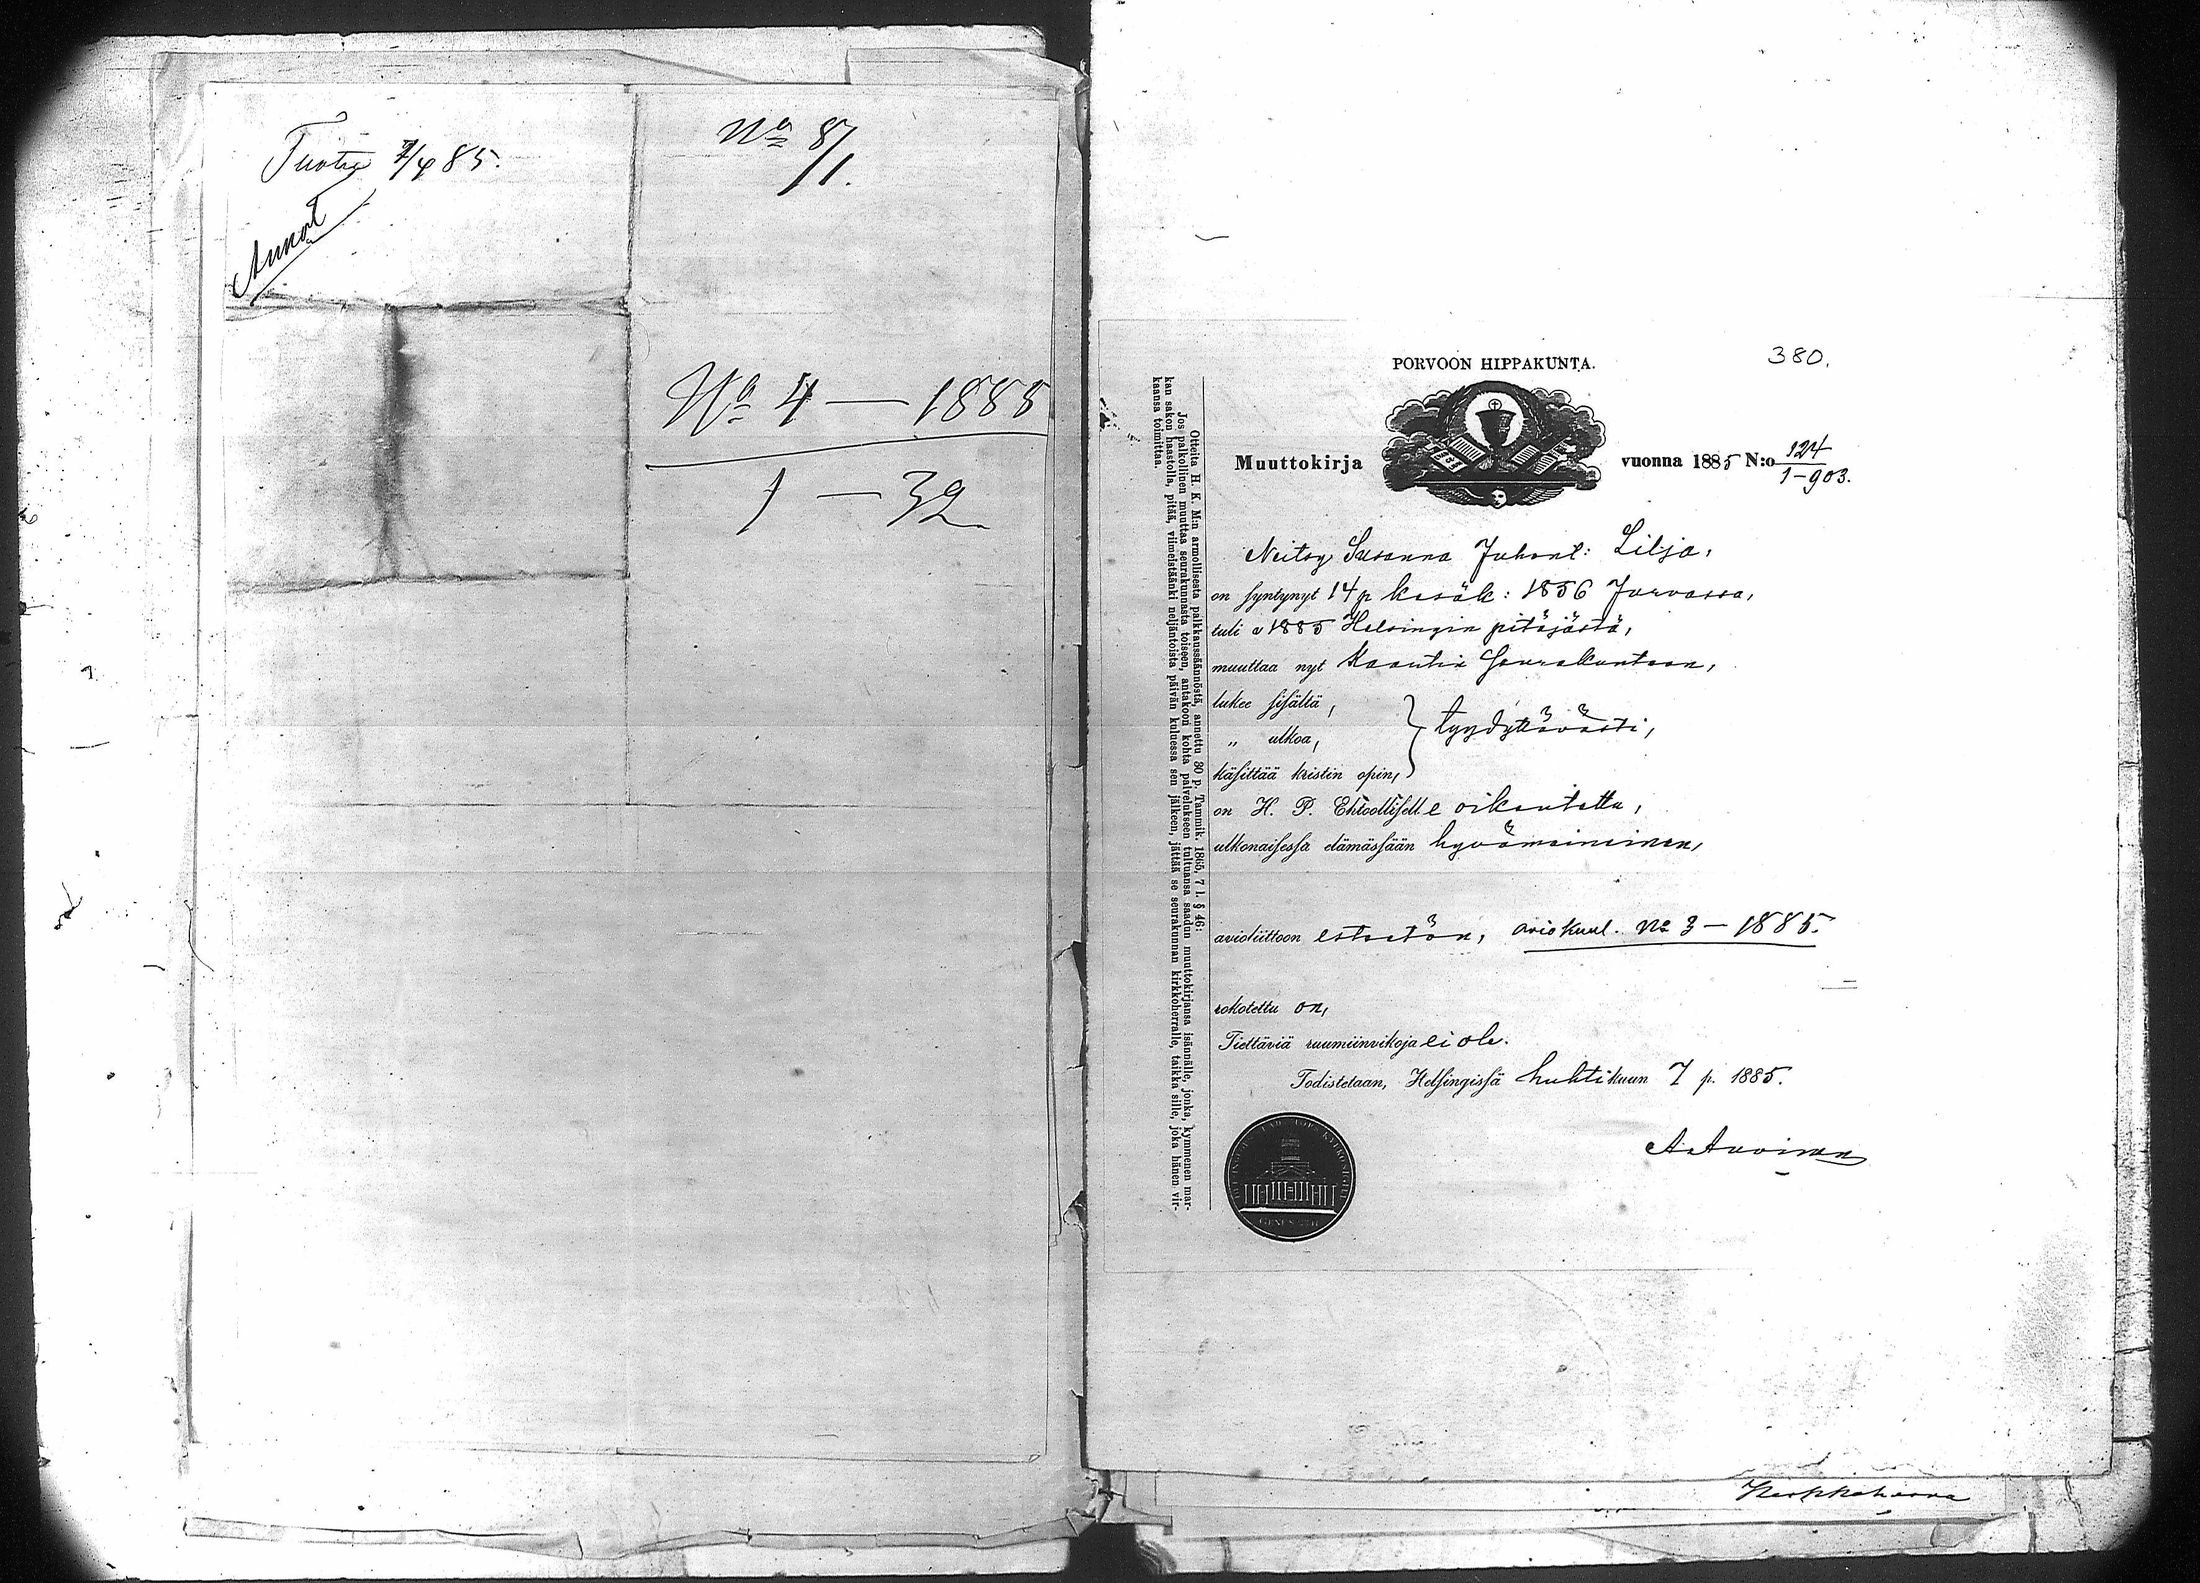 Tuotu 7/4 85.
Annot
No 87/1.
No 4 — 1885
1 — 32
380.
PORVOON HIPPAKUNTA.
Muuttokirja vuonna 1885 N:o 124
1-903.
Neitsy Susanna Juhont: Lilja,
on syntynyt 14 p kesäk: 1856 Jurvassa,
tuli v 1885 Helsingin pitäjästä,
muuttaa nyt Seurakuntaan,
lukee sisältä,
„ ulkoa, } tyydyttävästi,
käsittää kristin opin,
on H. P. Ehtoolliselle oikeutettu,
ulkonaisessa elämässään hyvämaineinen,
avioliittoon esteetön, aviokuul. No 3 — 1885.
rokotettu on,
Tiettäviä ruumiinvikoja ei ole.
Todistetaan, Helsingissä huhtikuun 7 p. 1885.
Otteita H. K. M:n armollisesta palkkaussäännöstä, annettu 30 p. Tammik. 1865, 7 l. § 46:
Jos palkollinen muuttaa seurakunnasta toiseen, antakoon kohta palvelukseen tultuansa saadun muuttokirjansa isännälle, jonka, kymmenen mar-
kan sakon haastolla, pitää, viimeistäänki neljäntoista päivän kuluessa sen jälkeen, jättää se seurakunnan kirkkoherralle, taikka sille, joka hänen vir-
kaansa toimittaa.
Kirkkoherra